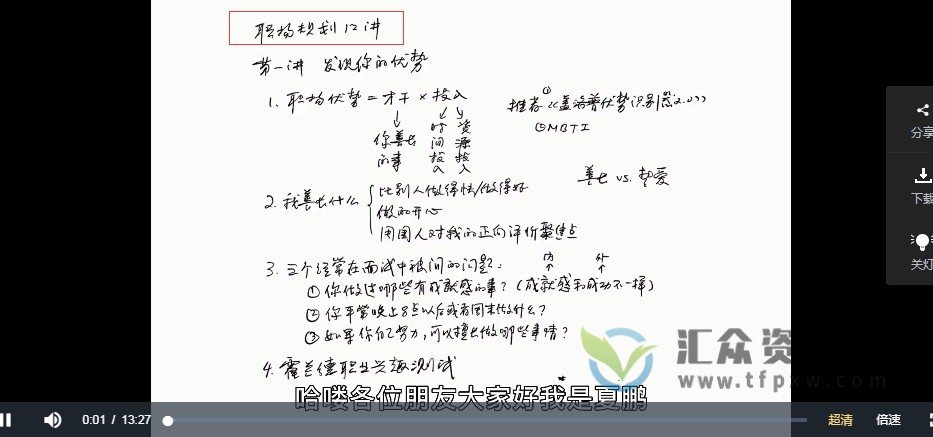 职场规划12讲
第一讲 发现你的优势
1. 职场优势=才干×投入
你善长的事
时间投入
资源投入
推荐 ①《盖洛普优势识别器2.0》
②MBTI
善长 vs. 热爱
2. 我善长什么
比别人做得快/做得好
做的开心
周围人对我的正向评价聚焦点
3. 三个经常在面试中被问的问题:
内 外
① 你做过哪些有成就感的事?(成就感和成功不一样)
② 你平常晚上8点以后或者周末做什么?
③ 如果你自己努力,可以擅长做哪些事情?
4. 霍兰德职业兴趣测试
哈喽各位朋友大家好我是夏鹏
汇众资
www.tfpxw.com
分享
下载
关灯
0:01 / 13:27
超清 倍速